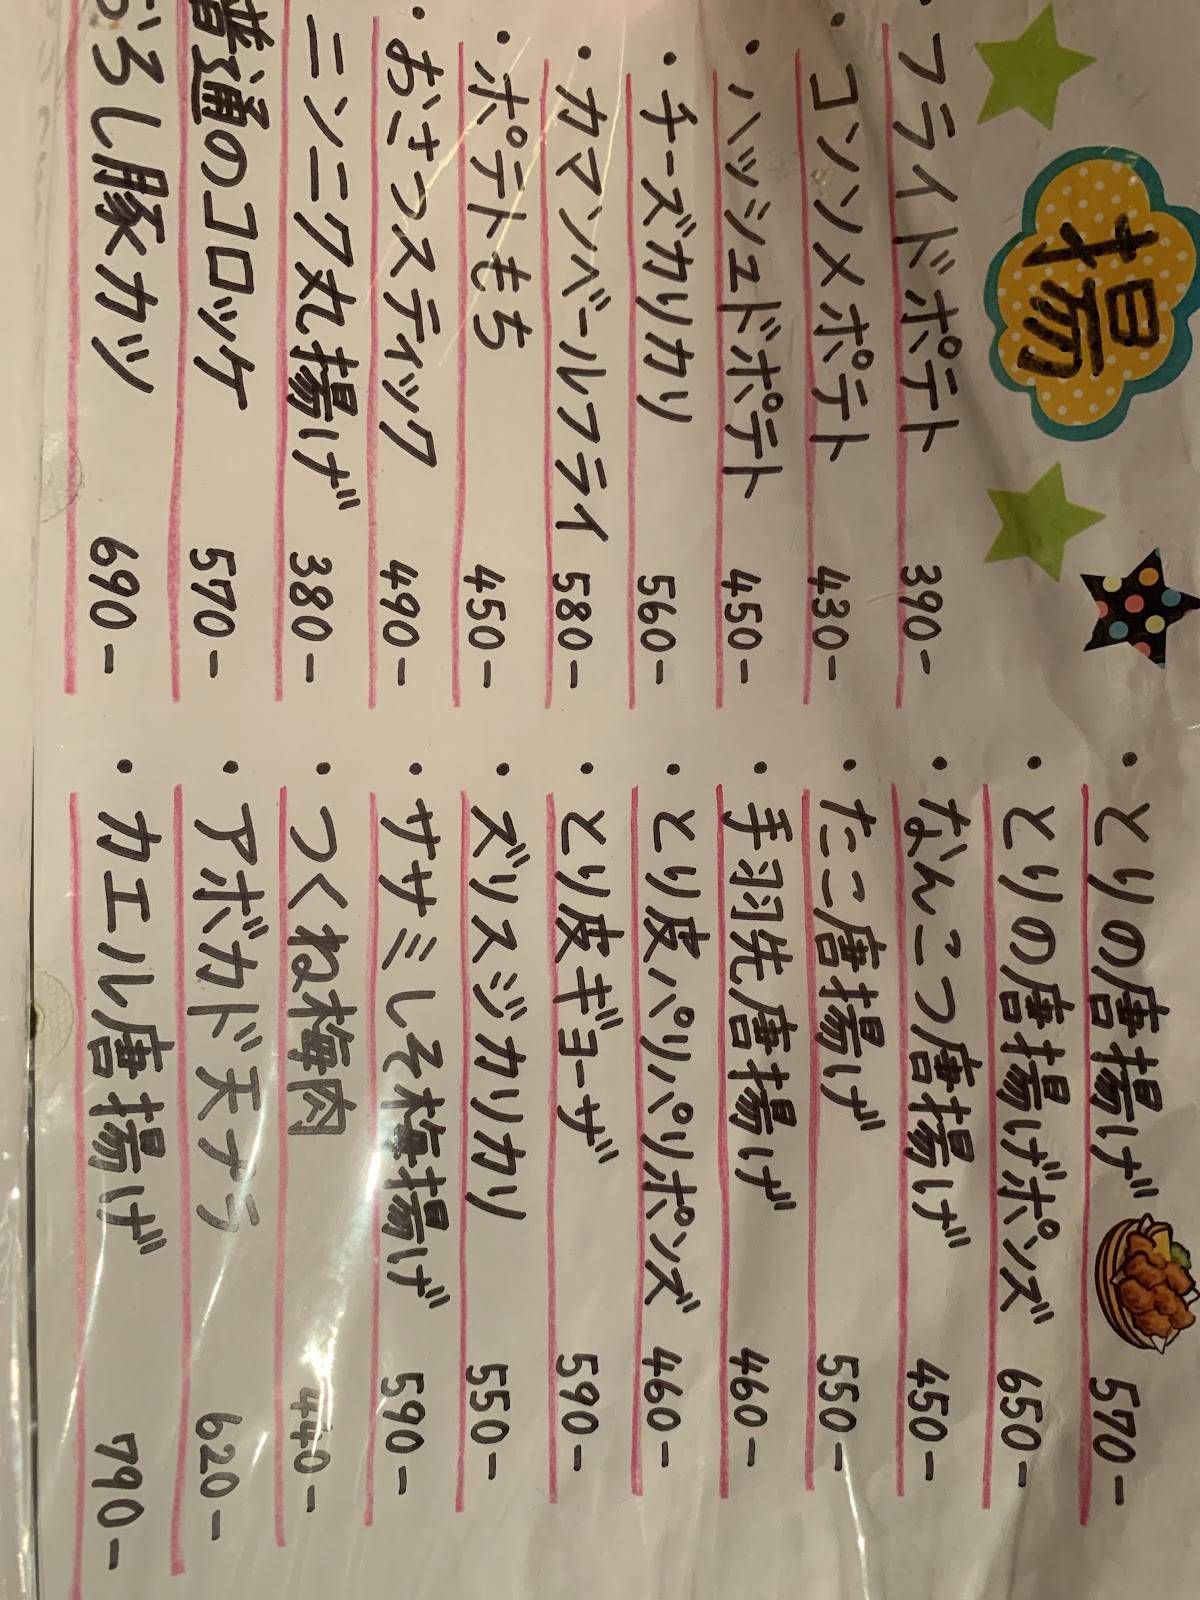 揚
・フライドポテト 390-
・コンソメポテト 430-
・ハッシュドポテト 450-
・チーズカリカリ 560-
・カマンベールフライ 580-
・ポテトもち 450-
・おさつスティック 490-
ニンニク丸揚げ 380-
普通のコロッケ 570-
おろし豚カツ 690-
・とりの唐揚げ 570-
・とりの唐揚げポンズ 650-
・なんこつ唐揚げ 450-
・たこ唐揚げ 550-
・手羽先唐揚げ 460-
・とり皮パリパリポンズ 460-
・とり皮ギョーザ 590-
・ズリスジカリカリ 550-
・ササミしそ梅揚げ 590-
・つくね梅肉 440-
・アボカド天プラ 620-
・カエル唐揚げ 790-